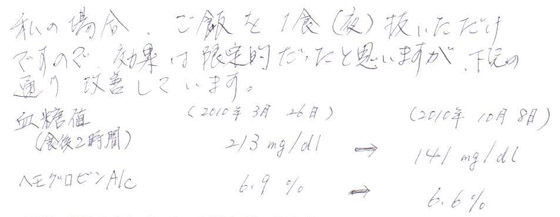 私の場合、ご飯を1食(夜)抜いただけ
ですので、効果は限定的だったと思いますが、下記の
通り改善しています。
血糖値 (2010年3月26日) (2010年10月8日)
(食後2時間) 213 mg/dl → 141 mg/dl
ヘモグロビンA1c 6.9% → 6.6%